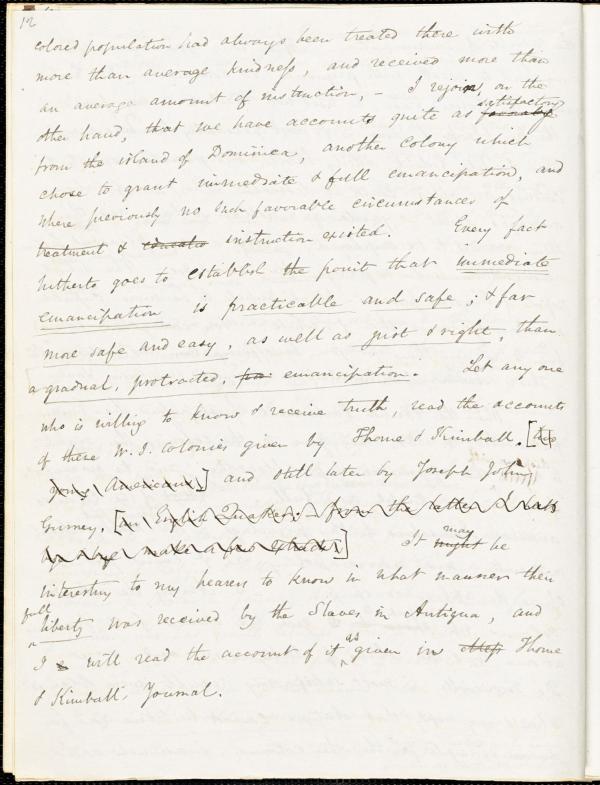 12
colored population had always been treated there with
more than average kindness, and received more than
an average amount of instruction, – I rejoin, on the
other hand, that we have accounts quite as satisfactory favorable
from the island of Dominica, another colony which
chose to grant immediate & full emancipation, and
where previously no such favorable circumstances of
treatment & instruction existed. Every fact
hitherto goes to establish the point that immediate
emancipation is practicable and safe; & far
more safe and easy, as well as just & right, than
a gradual, protracted, emancipation. Let any one
who is willing to know & receive truth, read the accounts
of these W. I. colonies given by Thome & Kimball. [two
young Americans,] and still later by Joseph John
Gurney, [an English Quaker. – from the latter I shall
by & by make a few extracts] It may might be
interesting to my hearers to know in what manner their
full liberty was received by the Slaves in Antigua, and
I will read the account of it as given in Thome
& Kimball's Journal.